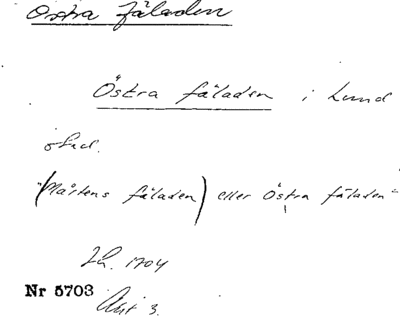 Östra fäladen
Östra fäladen i Lund
stad.
"(Mårtens fäladen) eller Östra fäladen"
LA. 1704
Nr 5703
Akt 3.